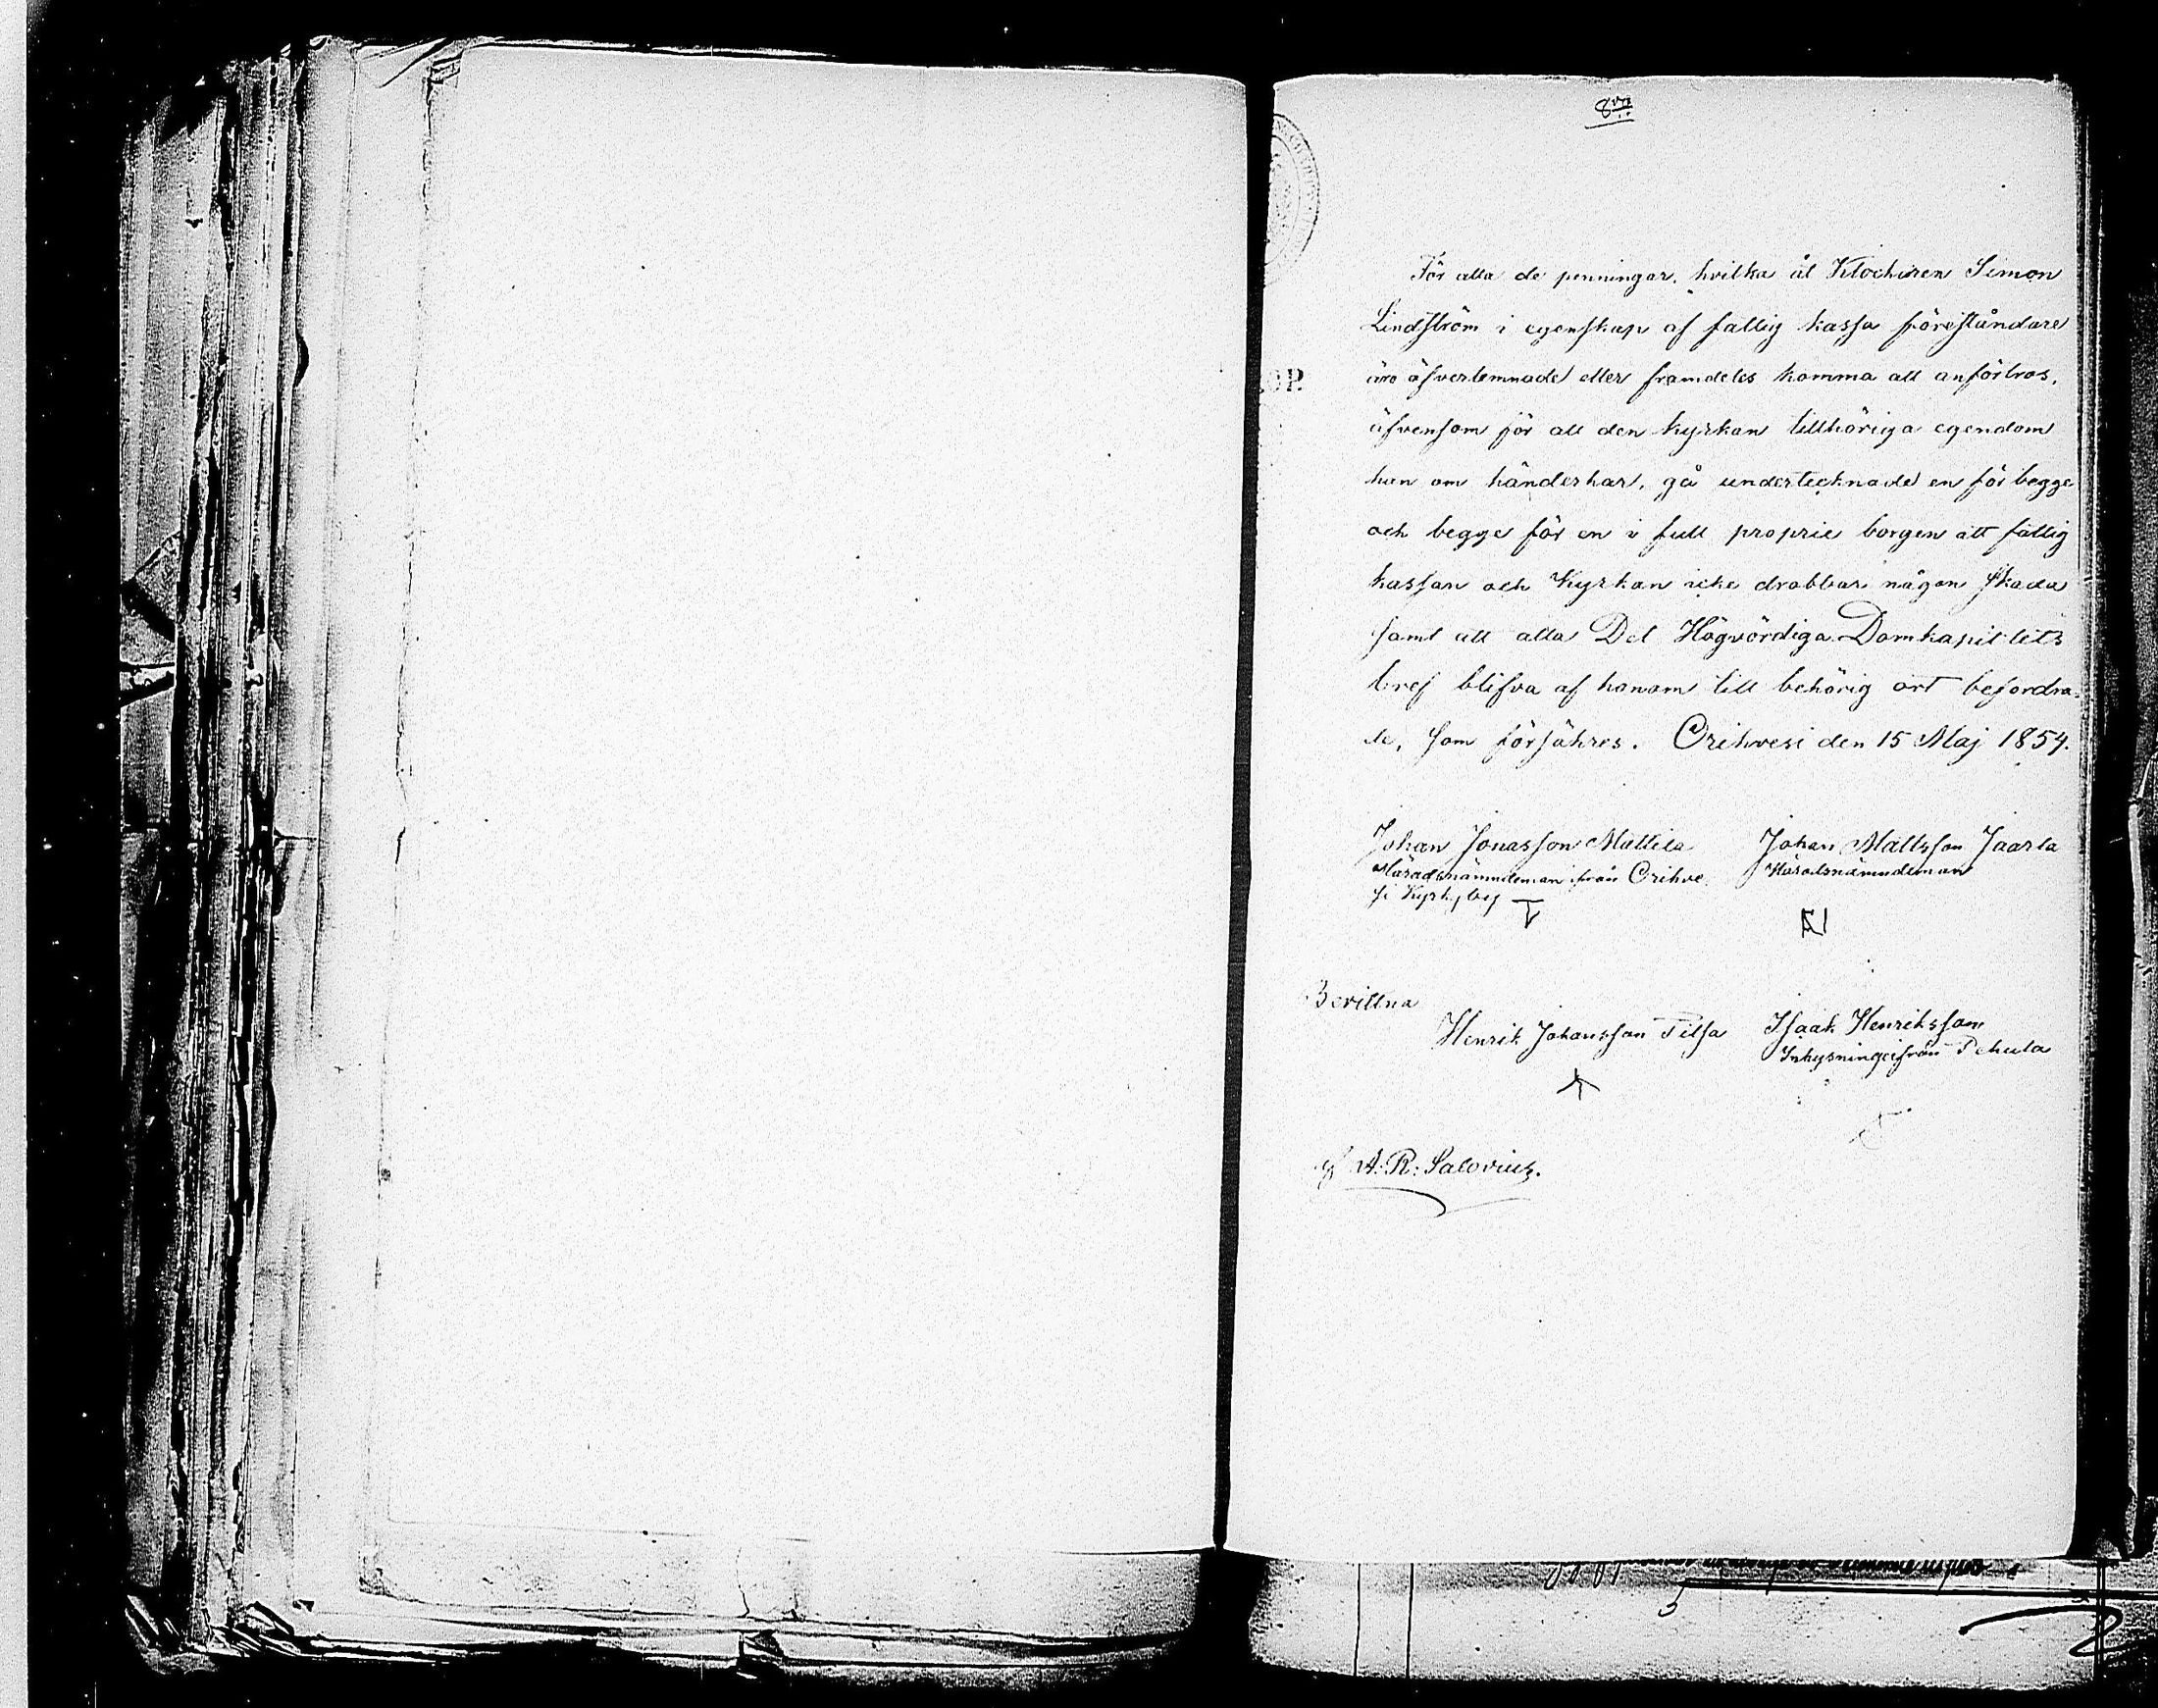 För alla de penningar, hvilka åt Klockaren Simon
Lindström i egenskap af fattig kassa föreståndare
äro öfverlemnade eller framdeles komma att anförtros,
äfvensom för all den kyrkan tillhöriga egendom
han om händer har, gå undertecknade en för begge
och begge för en i full proprie borgen att fattig
kassan och Kyrkan icke drabbar någon skada
samt att alla Det Högvördiga Domkapitlets
bref blifva af honom till behörig ort befordra-
de, som försäkres. Orihvesi den 15 Maj 1854.
Johan Jonasson Mattila Johan Mattsson Jaarla
Häradsnämndeman ifrån Orihve- Häradsnämndeman
si Kyrkjby
Bevittna
Henrik Johansson Pilsa Isaak Henriksson
Inhysninge ifrån Pehula
A: R: Salovius.
OP.